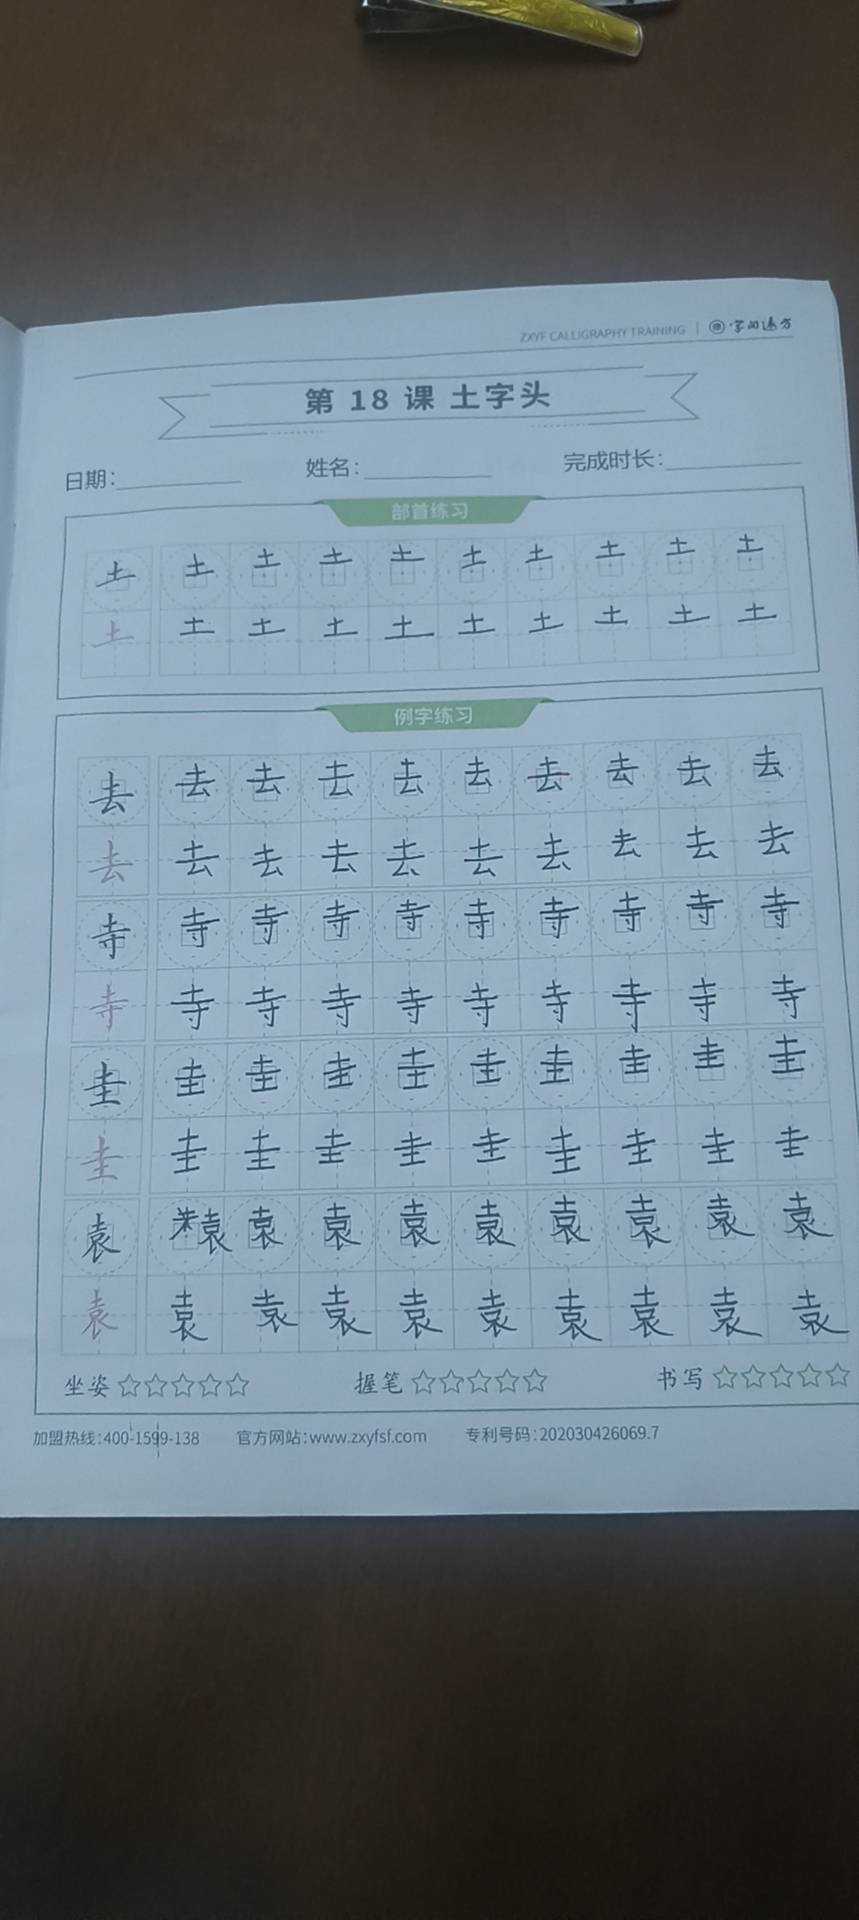 ZXYF CALLIGRAPHY TRAINING | 字间远方
第 18 课 土字头
日期: 姓名: 完成时长:
部首练习
土 土 土 土 土 土 土 土 土 土
土 土 土 土 土 土 土 土 土 土
例字练习
去 去 去 去 去 去 去 去 去 去
去 去 去 去 去 去 去 去 去 去
寺 寺 寺 寺 寺 寺 寺 寺 寺 寺
寺 寺 寺 寺 寺 寺 寺 寺 寺 寺
圭 圭 圭 圭 圭 圭 圭 圭 圭 圭
圭 圭 圭 圭 圭 圭 圭 圭 圭 圭
袁 袁 袁 袁 袁 袁 袁 袁 袁 袁
袁 袁 袁 袁 袁 袁 袁 袁 袁 袁
坐姿☆☆☆☆☆ 握笔☆☆☆☆☆ 书写☆☆☆☆☆
加盟热线:400-1599-138 官方网站:www.zxyfsf.com 专利号码:202030426069.7